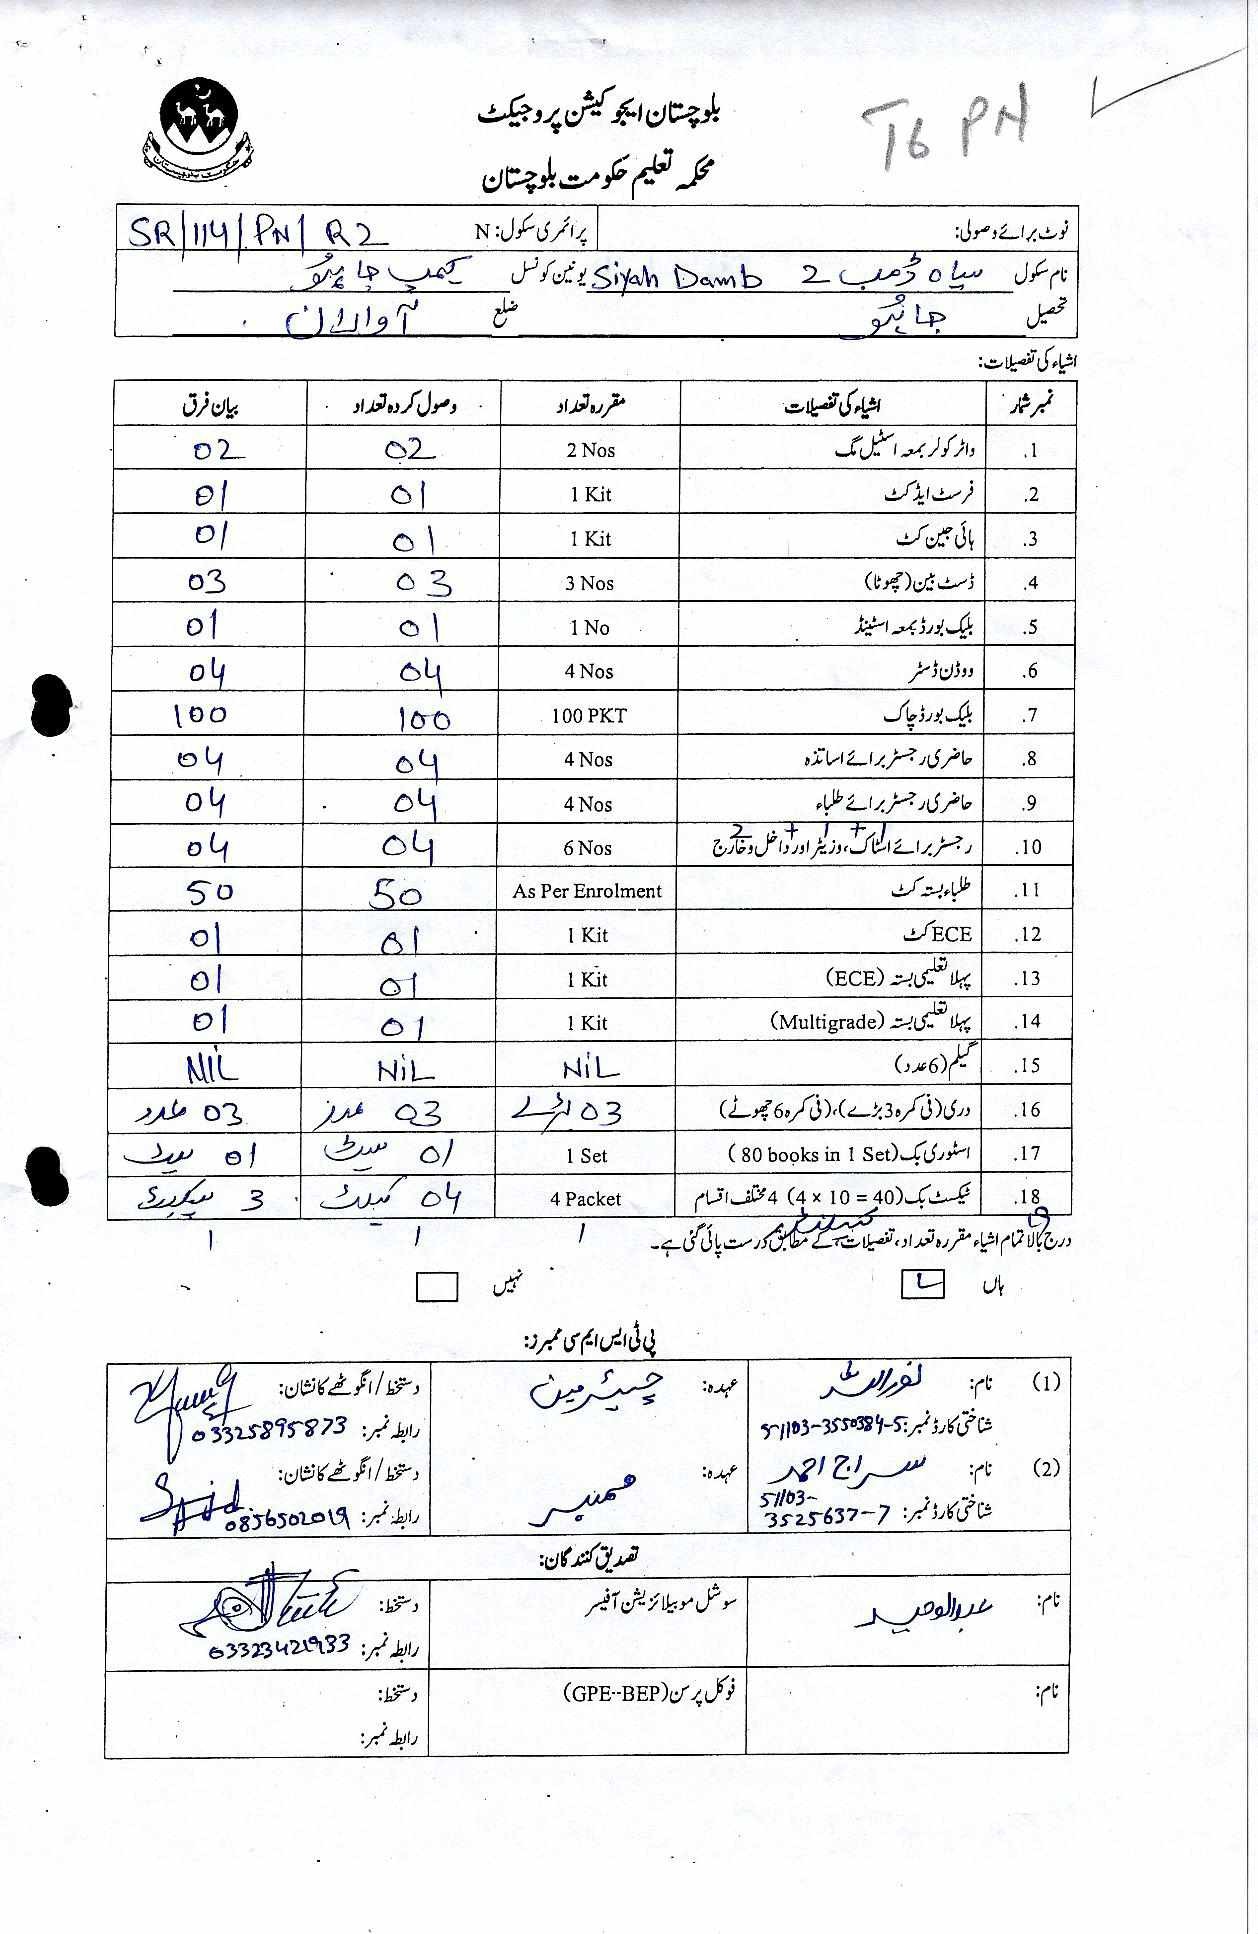 T6 PN
بلوچستان ایجوکیشن پروجیکٹ
محکمہ تعلیم حکومت بلوچستان
نوٹ برائے وصولی: پرائمری سکول: N SR/114/PN/R2
نام سکول سیاہ ڈمب 2 Siyah Damb یونین کونسل کیمپ جاہو
تحصیل جاہو ضلع آواران
اشیاء کی تفصیلات:
نمبر شمار اشیاء کی تفصیلات مقررہ تعداد وصول کردہ تعداد بیان فرق
1. واٹر کولر بمعہ اسٹیل مگ 2 Nos 02 02
2. فرسٹ ایڈ کٹ 1 Kit 01 01
3. ہائی جین کٹ 1 Kit 01 01
4. ڈسٹ بین (چھوٹا) 3 Nos 03 03
5. بلیک بورڈ بمعہ اسٹینڈ 1 No 01 01
6. ووڈن ڈسٹر 4 Nos 04 04
7. بلیک بورڈ چاک 100 PKT 100 100
8. حاضری رجسٹر برائے اساتذہ 4 Nos 04 04
9. حاضری رجسٹر برائے طلباء 4 Nos 04 04
10. رجسٹر برائے اسٹاک، وزیٹر اور داخل و خارج 1+1+2 6 Nos 04 04
11. طلباء بستہ کٹ As Per Enrolment 50 50
12. ECE کٹ 1 Kit 01 01
13. پہلا تعلیمی بستہ (ECE) 1 Kit 01 01
14. پہلا تعلیمی بستہ (Multigrade) 1 Kit 01 01
15. گیلم (6 عدد) NiL NiL NIL
16. دری (فی کمرہ 3 بڑے)، (فی کمرہ 6 چھوٹے) 03 بڑے 03 عدد 03 عدد
17. اسٹوری بک (80 books in 1 Set) 1 Set 01 سیٹ 01 سیٹ
18. ٹیکسٹ بک (4 x 10 = 40) 4 مختلف اقسام 4 Packet 04 3
درج بالا تمام اشیاء مقررہ تعداد، تفصیلات کے مطابق درست پائی گئی ہے۔
ہاں نہیں
پی ٹی ایس ایم سی ممبرز:
(1) نام: نور اللہ عہدہ: چیئرمین دستخط / انگوٹھے کا نشان:
شناختی کارڈ نمبر: 51103-3550384-5 رابطہ نمبر: 03325895873
(2) نام: سراج احمد عہدہ: ممبر دستخط / انگوٹھے کا نشان: Sajid
شناختی کارڈ نمبر: 51103-3525637-7 رابطہ نمبر: 0856502019
تصدیق کنندگان:
نام: عبدالوحید سوشل موبیلائزیشن آفیسر دستخط:
رابطہ نمبر: 03323421933
نام: فوکل پرسن (GPE--BEP) دستخط:
رابطہ نمبر: